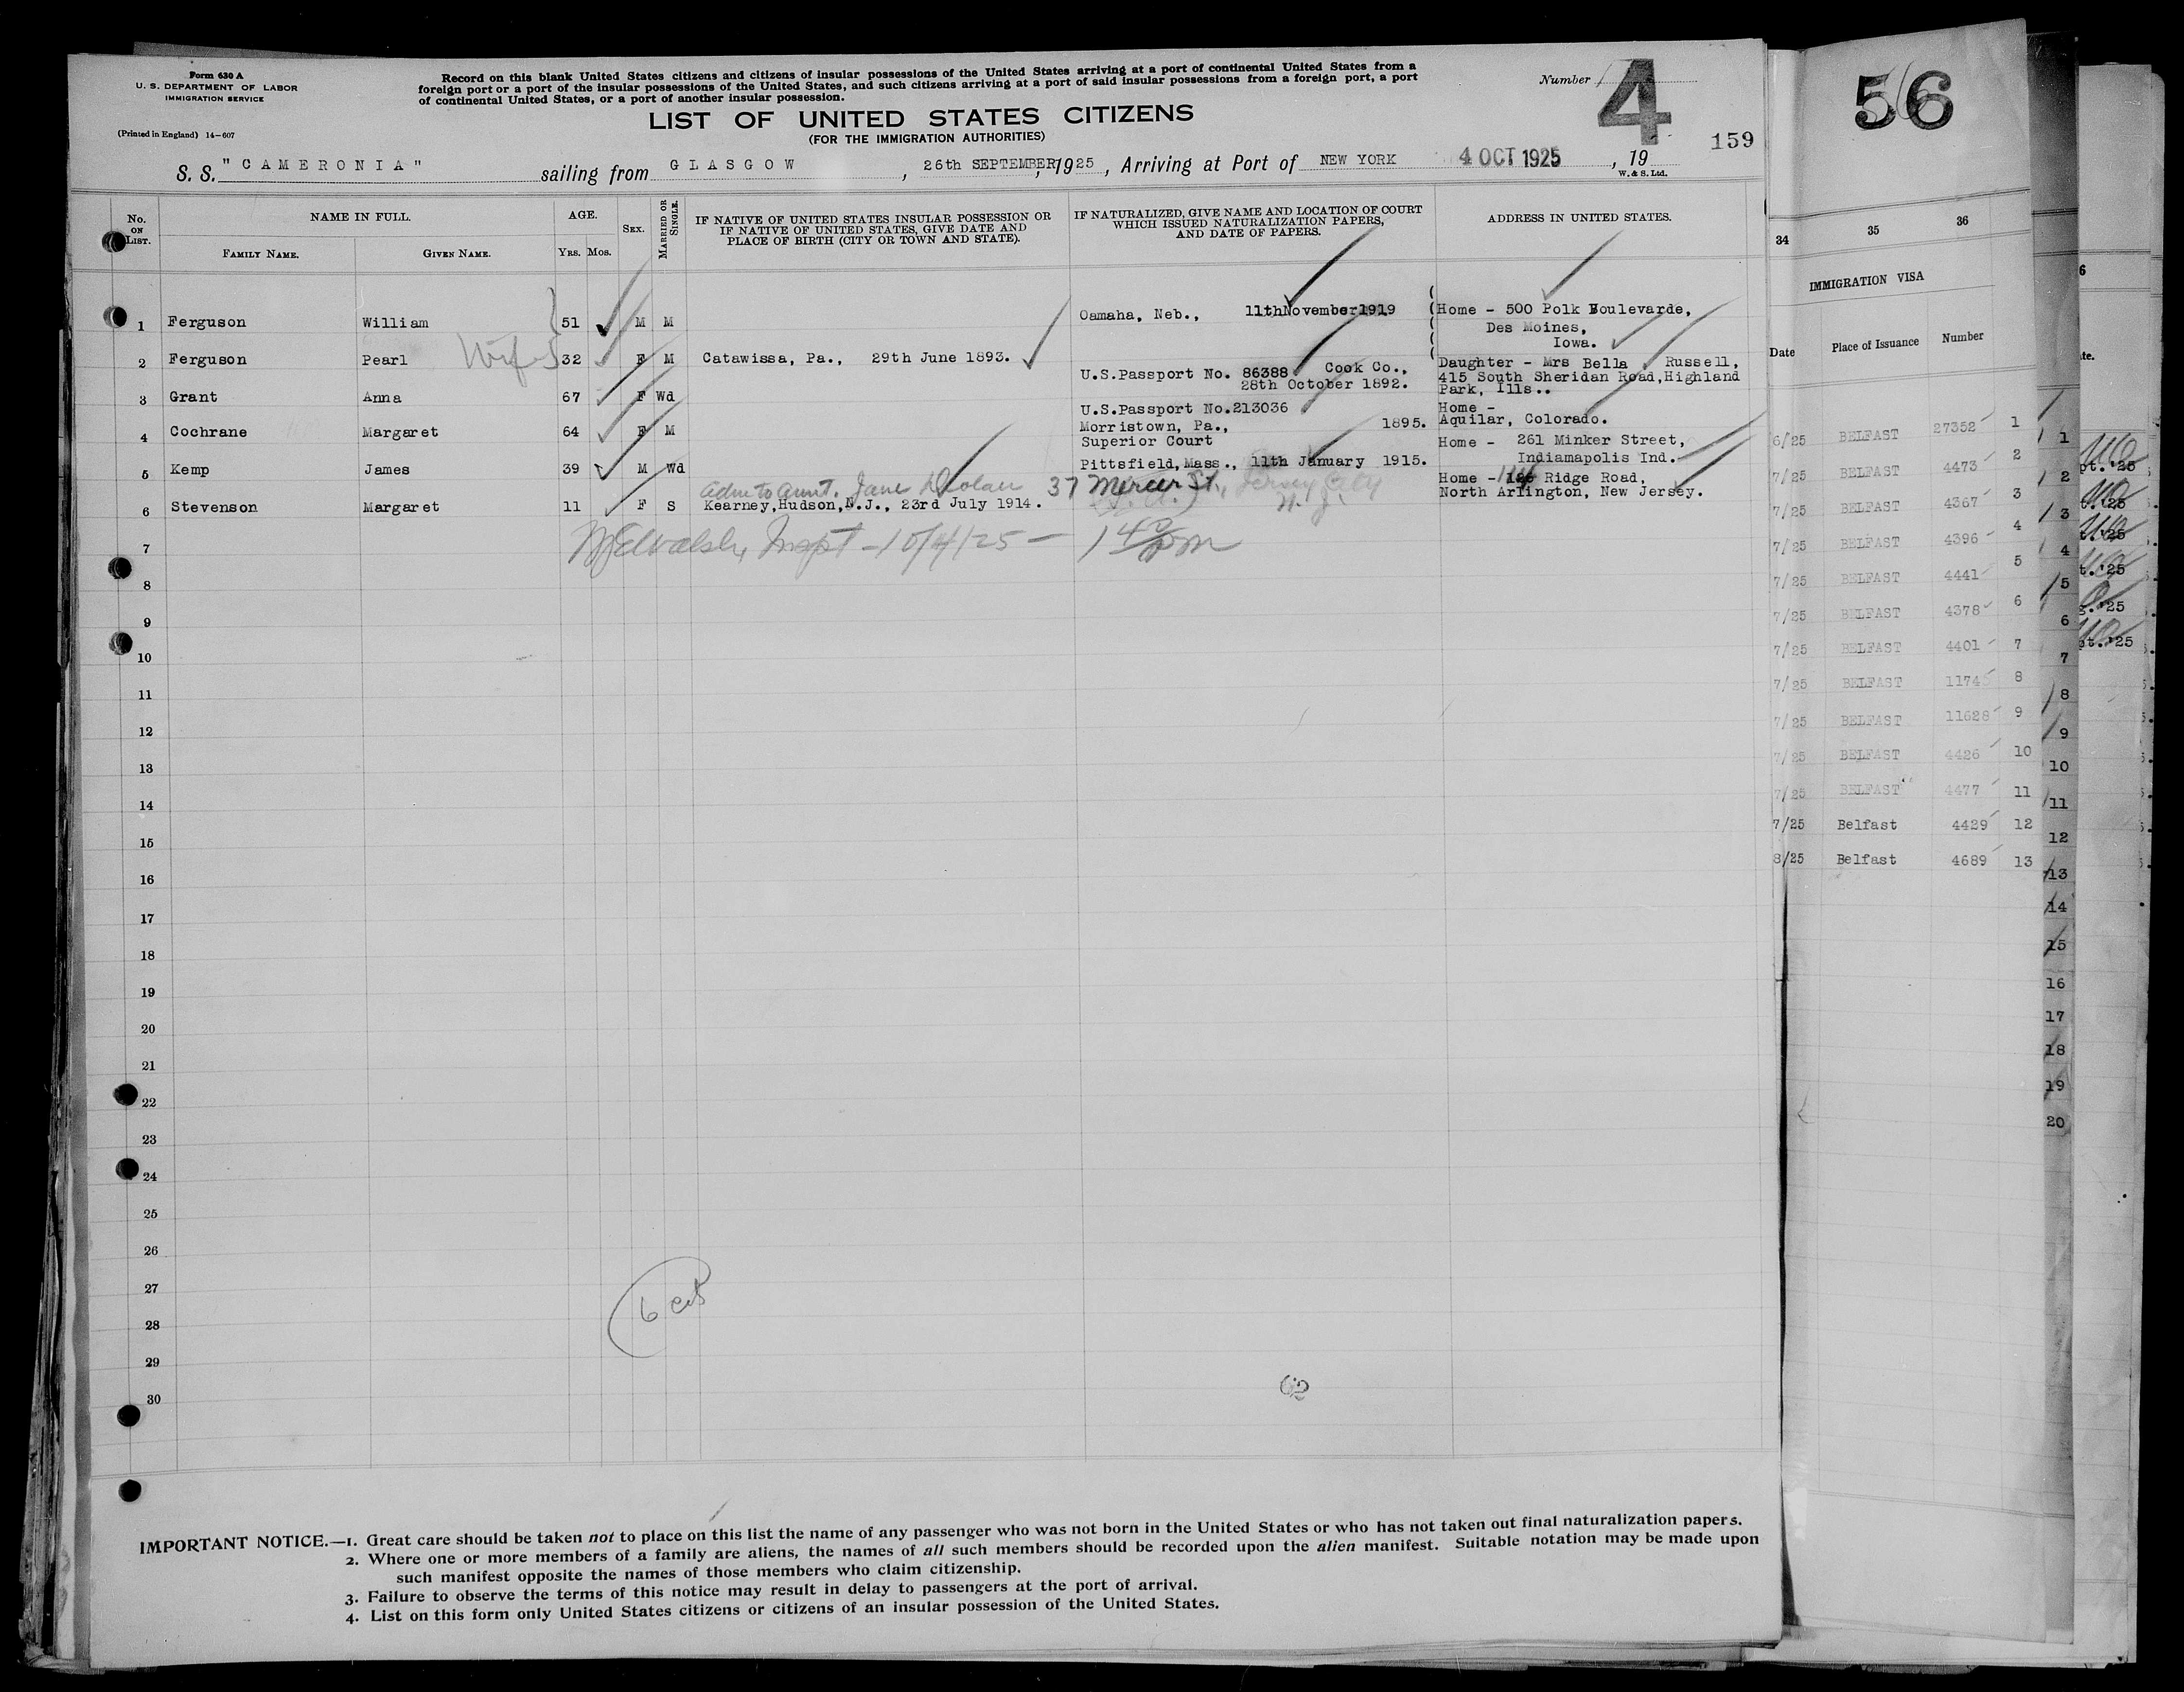 Form 630 A
U. S. DEPARTMENT OF LABOR
IMMIGRATION SERVICE
(Printed in England) 14-607
Record on this blank United States citizens and citizens of insular possessions of the United States arriving at a port of continental United States from a
foreign port or a port of the insular possessions of the United States, and such citizens arriving at a port of said insular possessions from a foreign port, a port
of continental United States, or a port of another insular possession.
Number 4
159
LIST OF UNITED STATES CITIZENS
(FOR THE IMMIGRATION AUTHORITIES)
S. S. "CAMERONIA" sailing from GLASGOW, 26th SEPTEMBER, 1925, Arriving at Port of NEW YORK 4 OCT 1925, 19
W. & S. Ltd.
No. ON LIST.
NAME IN FULL.
FAMILY NAME. GIVEN NAME.
AGE.
YRS. MOS.
SEX.
MARRIED OR SINGLE.
IF NATIVE OF UNITED STATES INSULAR POSSESSION OR
IF NATIVE OF UNITED STATES, GIVE DATE AND
PLACE OF BIRTH (CITY OR TOWN AND STATE).
IF NATURALIZED, GIVE NAME AND LOCATION OF COURT
WHICH ISSUED NATURALIZATION PAPERS,
AND DATE OF PAPERS.
ADDRESS IN UNITED STATES.
1 Ferguson William 51 M M Oamaha, Neb., 11thNovember1919 Home - 500 Polk Boulevarde,
Des Moines,
Iowa.
2 Ferguson Pearl Wife 32 F M Catawissa, Pa., 29th June 1893.
Daughter - Mrs Bella Russell,
415 South Sheridan Road,Highland
Park, Ills..
U.S.Passport No. 86388 Cook Co.,
28th October 1892.
3 Grant Anna 67 F Wd
U.S.Passport No.213036
Home -
Aquilar, Colorado.
Morristown, Pa., 1895.
4 Cochrane Margaret 64 F M
Superior Court
Home - 261 Minker Street,
Indiamapolis Ind.
5 Kemp James 39 M Wd Pittsfield, Mass., 11th January 1915.
Adm to aunt. Jane Dolan 37 Mercer St., Jersey City
N. J.
Home - Ridge Road,
North Arlington, New Jersey.
6 Stevenson Margaret 11 F S Kearney,Hudson,N.J., 23rd July 1914.
Inspt - 10/4/25 - 1 40 pm
7
8
9
10
11
12
13
14
15
16
17
18
19
20
21
22
23
24
25
26
27
28
29
30
6 cit
62
IMPORTANT NOTICE.—1. Great care should be taken not to place on this list the name of any passenger who was not born in the United States or who has not taken out final naturalization papers.
2. Where one or more members of a family are aliens, the names of all such members should be recorded upon the alien manifest. Suitable notation may be made upon
such manifest opposite the names of those members who claim citizenship.
3. Failure to observe the terms of this notice may result in delay to passengers at the port of arrival.
4. List on this form only United States citizens or citizens of an insular possession of the United States.
56
34 35 36
IMMIGRATION VISA
Date Place of Issuance Number
6/25 BELFAST 27352 1
7/25 BELFAST 4473 2
7/25 BELFAST 4367 3
7/25 BELFAST 4396 4
7/25 BELFAST 4441 5
7/25 BELFAST 4378 6
7/25 BELFAST 4401 7
7/25 BELFAST 1174 8
7/25 BELFAST 11628 9
7/25 BELFAST 4426 10
7/25 BELFAST 4477 11
7/25 Belfast 4429 12
8/25 Belfast 4689 13
1
2
3
4
5
6
7
8
9
10
11
12
13
14
15
16
17
18
19
20
6
te.
pt.'25
t.'25
t.'25
t.'25
g.'25
pt.'25